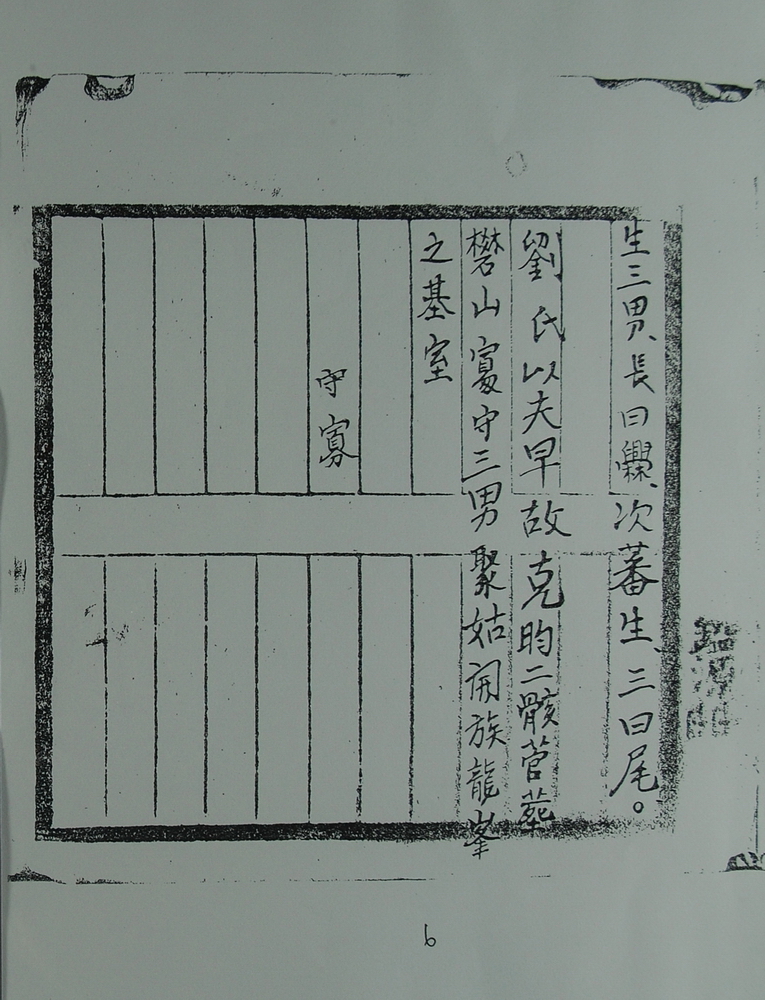 生三男、長曰爨、次蕃生、三曰尾。
劉氏以夫早故克昀二骸营葬
礬山寡守三男聚姑開族龍峯
之基室
守寡
6